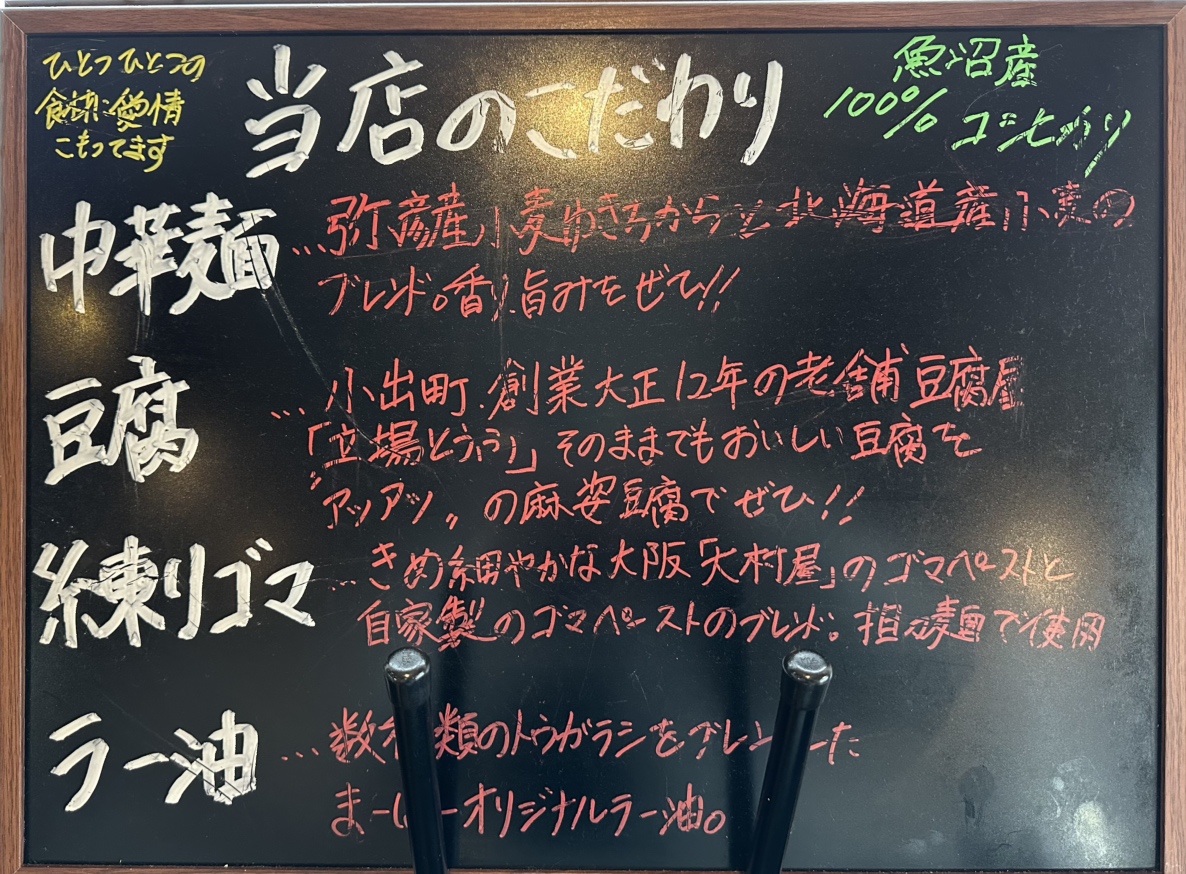 ひとつひとつの
食べ物に愛情
こもってます
当店のこだわり
魚沼産
100% コシヒカリ
中華麺
…弥彦産小麦ゆきちからと北海道産小麦の
ブレンド。香り、旨みをぜひ!!
豆腐
…小出町 創業大正12年の老舗豆腐屋
「立場とうふ」そのままでもおいしい豆腐を
〝アツアツ〟の麻婆豆腐でぜひ!!
練りゴマ
…きめ細やかな大阪「大村屋」のゴマペーストと
自家製のゴマペーストのブレンド。担々麺で使用
ラー油
…数 類のトウガラシをブレン した
まー ーオリジナルラー油。